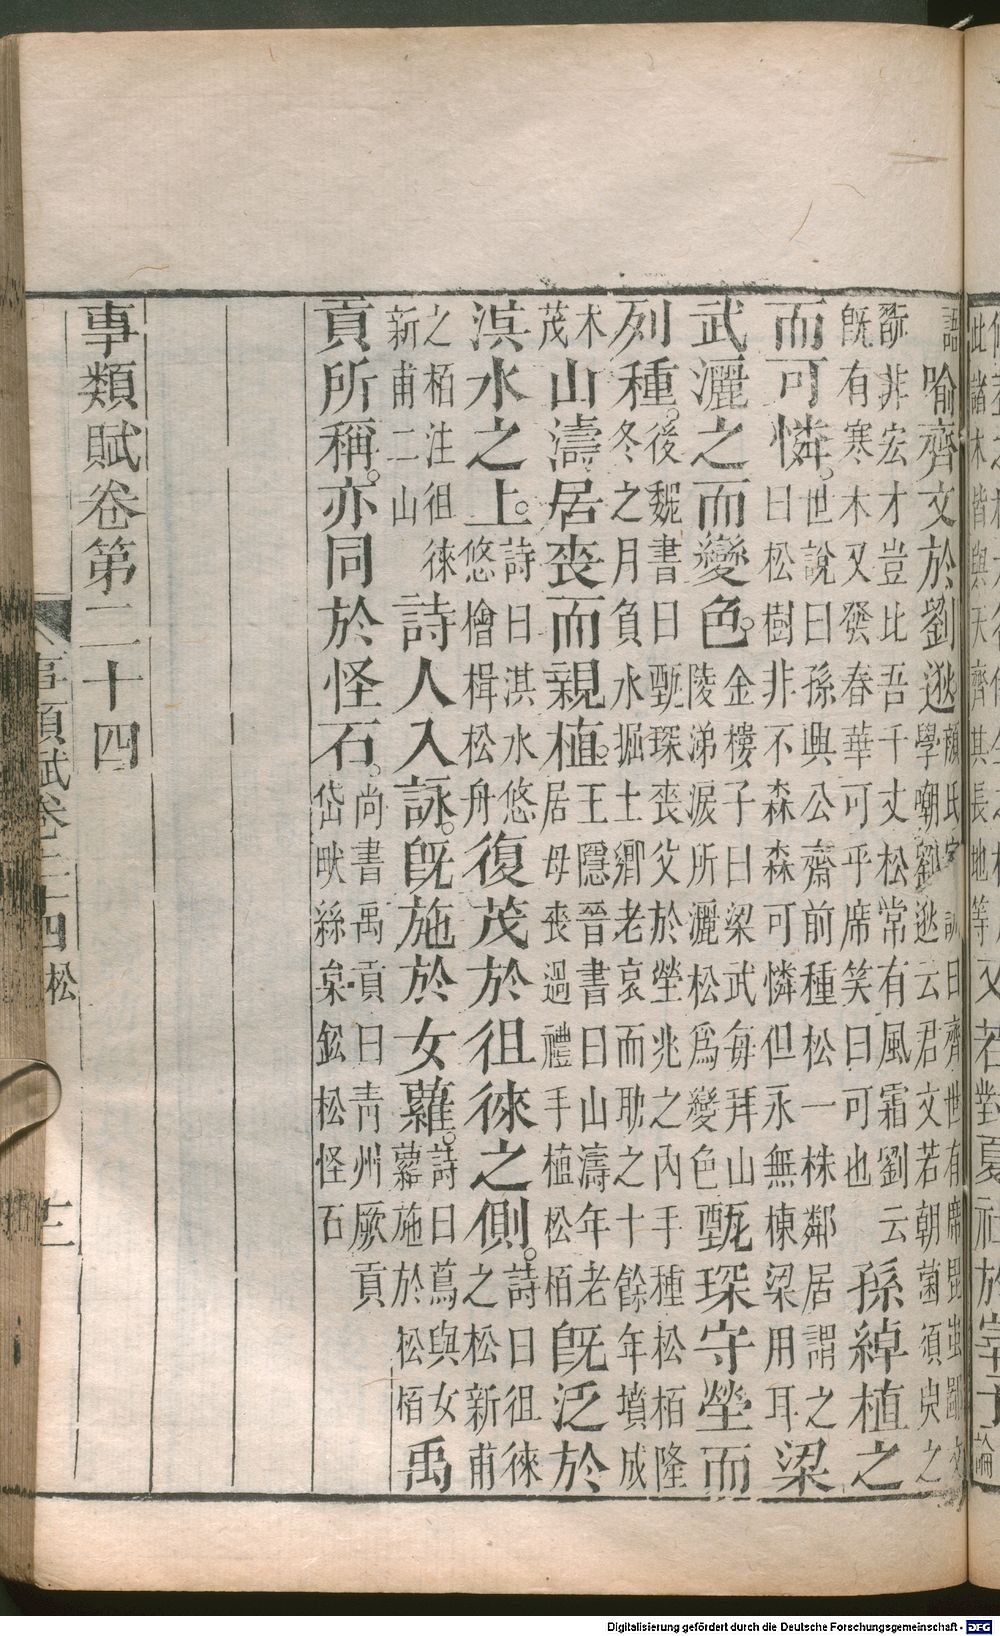 此諸木皆與天齊其長地等又若對夏社於宰予論
語喻齊文於劉逖顏氏家訓曰齊世有席毘虫鄙文
學嘲劉逖云君文若朝菌須臾之
翫非宏才豈比吾千丈松常有風霜劉云
既有寒木又發春華可乎席笑曰可也孫綽植之
而可憐。世說曰孫興公齋前種松一株鄰居謂之
曰松樹非不森森可憐但永無棟梁用耳梁
武灑之而變色。金樓子曰梁武每拜山
陵涕淚所灑松爲變色甄琛守塋而
列種。後魏書曰甄琛喪父於塋兆之內手種松栢隆
冬之月負水掘土鄉老哀而助之十餘年墳成
木
茂山濤居喪而親植。王隱晉書曰山濤年老
居母喪過禮手植松栢既泛於
淇水之上。詩曰淇水悠
悠檜楫松舟復茂於徂徠之側。詩曰徂徠
之松新甫
之栢注徂徠
新甫二山詩人入詠。既施於女蘿。詩曰蔦與女
蘿施於松栢禹
貢所稱。亦同於怪石。尚書禹貢曰青州厥貢
岱畎絲枲鈆松怪石
事類賦卷第二十四
事類賦卷二十四 松
Digitalisierung gefördert durch die Deutsche Forschungsgemeinschaft - DFG